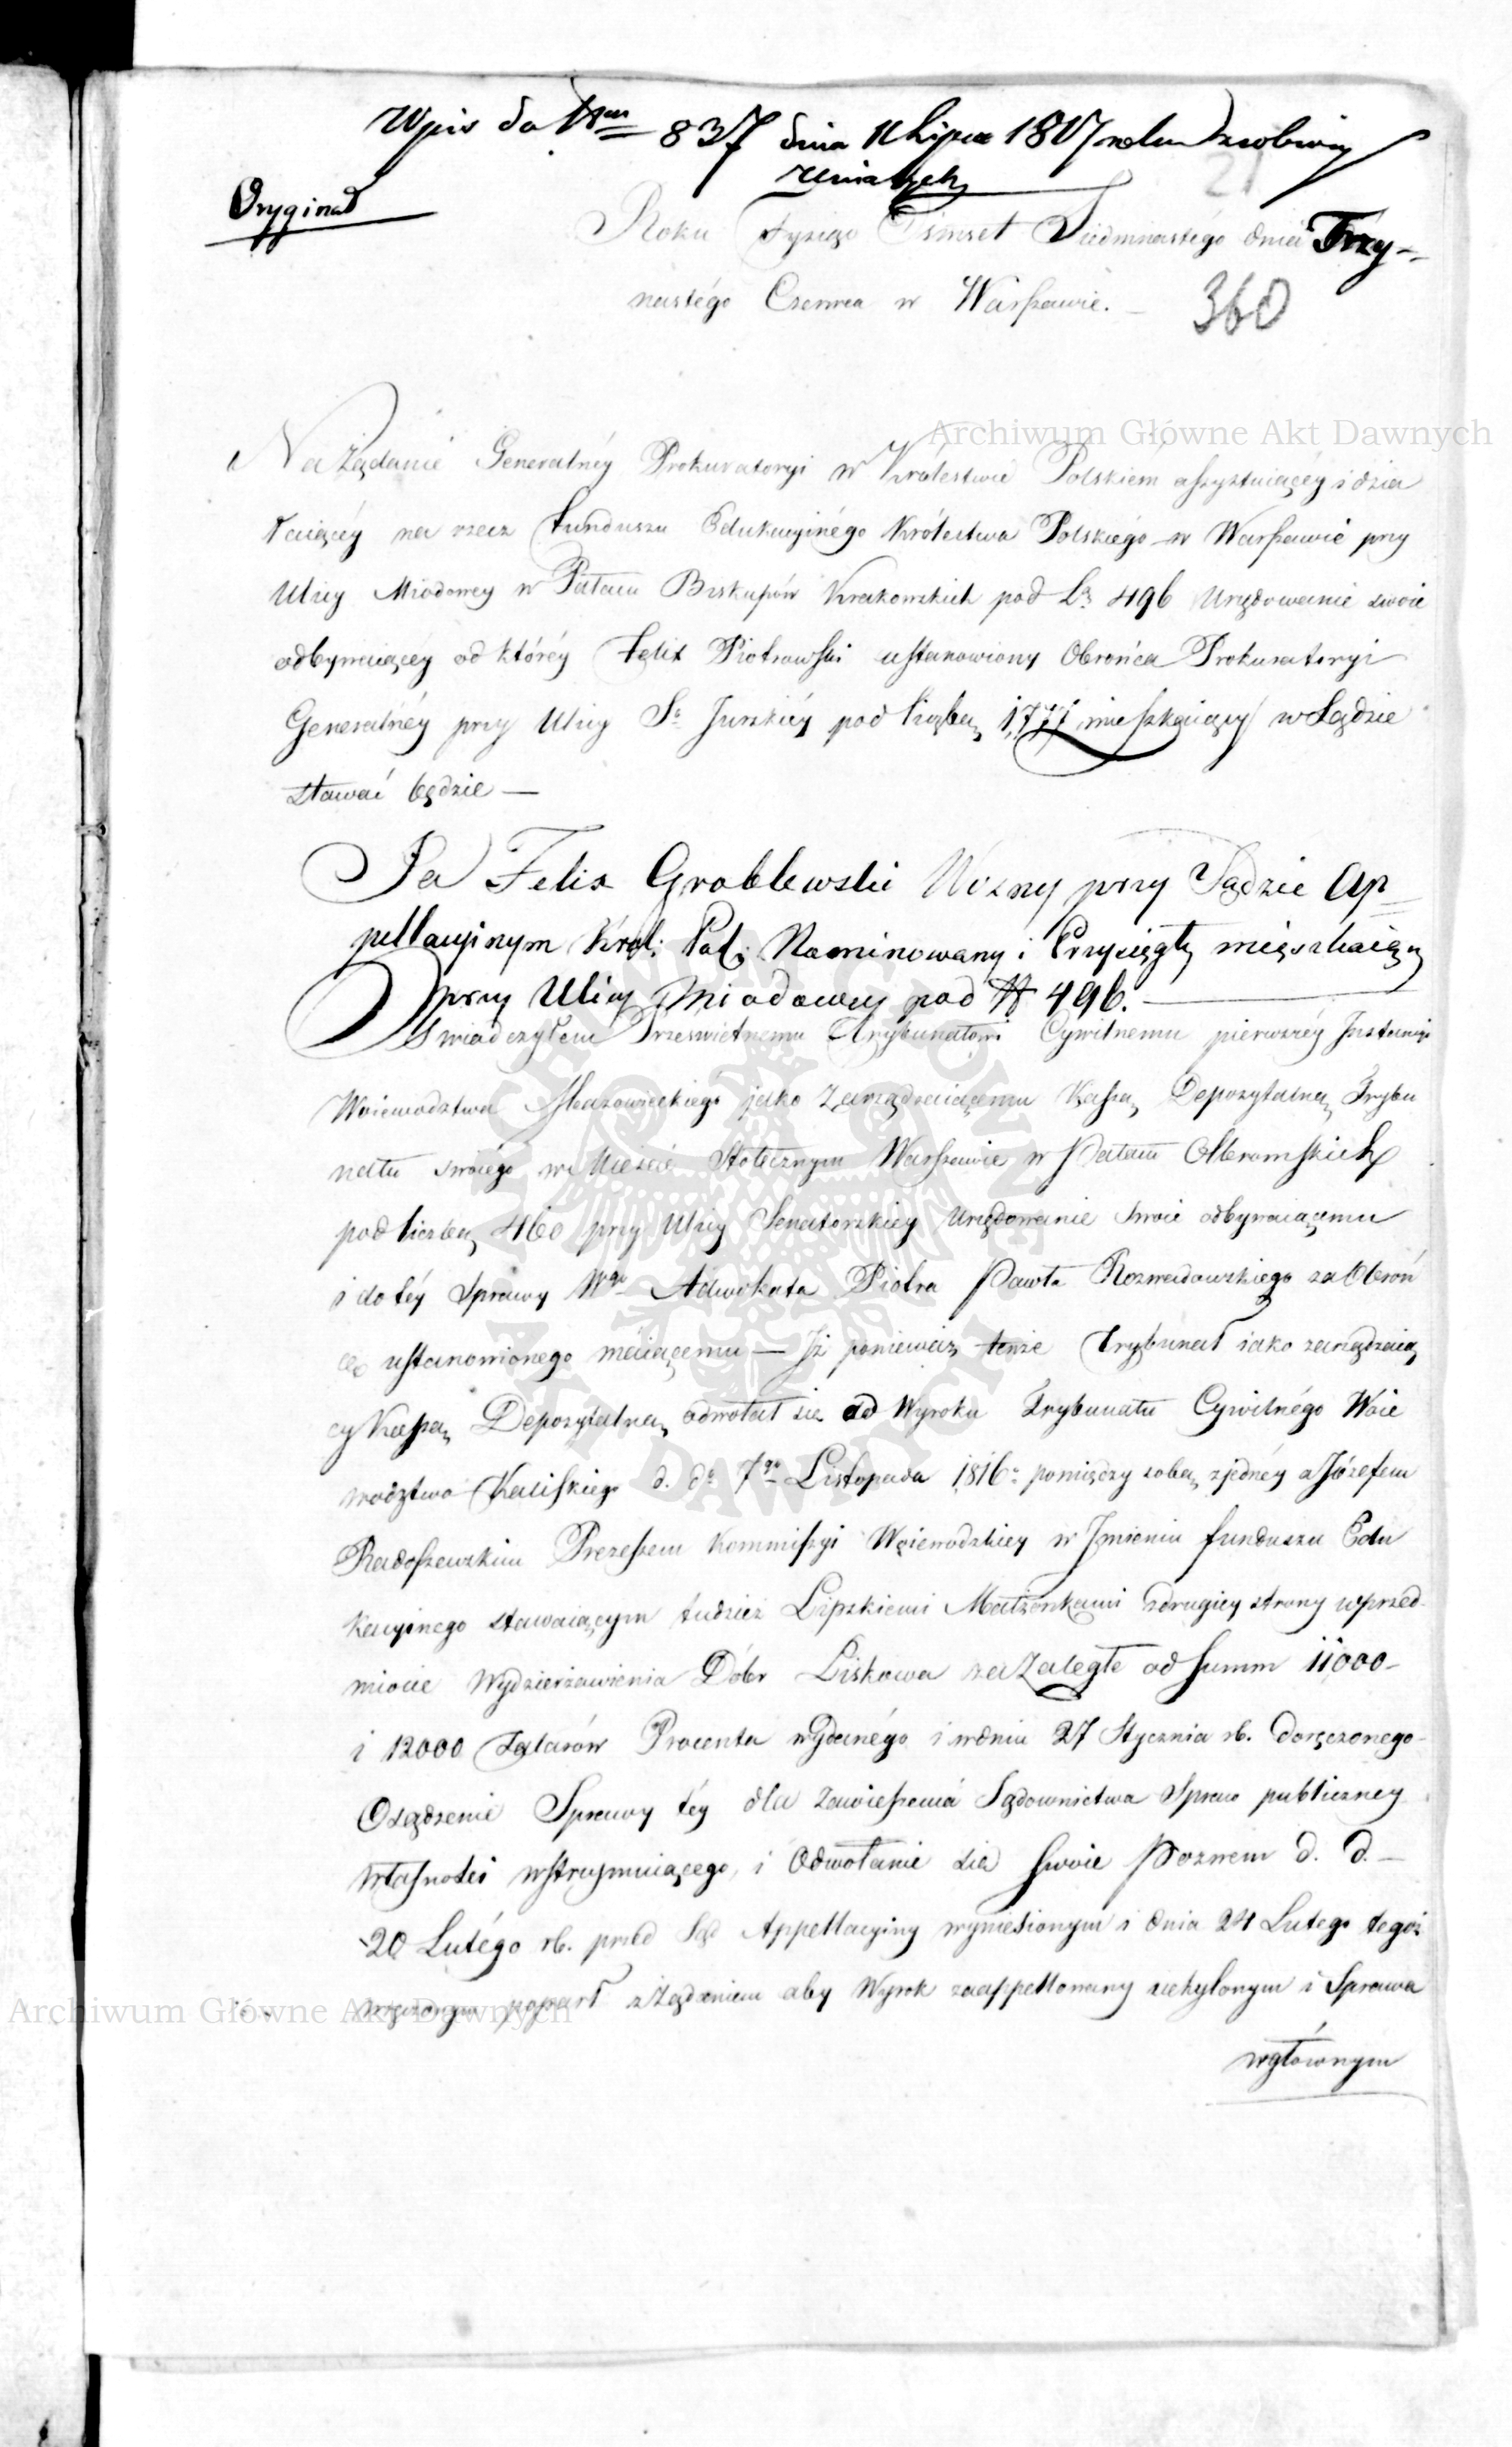 Wpis do Nru 837 dnia 11 Lipca 1817 roku
Oryginał
21
Roku Tysiąc Osmset Siedmnastégo dnia Trzy-
nastégo Czerwca w Warszawie. —
360
Archiwum Główne Akt Dawnych
Na Żądanie Generalnéy Prokuratoryi w Królestwie Polskiem assystuiącéy i dzia
łaiącéy na rzecz Funduszu Edukacyinégo Królestwa Polskiégo w Warszawie przy
Ulicy Miodowey w Pałacu Biskupów Krakowskich pod L. 496 Urzędowanie swoie
odbywaiącéy od któréy Felix Piotrowski ustanowiony Obrońca Prokuratoryi
Generalnéy przy Ulicy St Jurskiéy pod liczbą 1777 mieszkaiący w Sądzie
stawać będzie —
Ja Felix Groblewski Wozny przy Sądzie Ap=
pellacyinym Król: Pol: Nominowany i Przysięgły mięszkaiący
przy Ulicy Miodowey pod N 496. —
Oswiadczyłem Prześwietnemu Trybunałowi Cywilnemu pierwszéy Instancyi
Woiewodztwa Mazowieckiégo jako Zarządzaiącemu Kassą Depozytalną Trybu
nału swoiégo w Mieście Stołecznym Warszawie w Pałacu Olbromskich
pod liczbą 460 przy Ulicy Senatorskiey Urzędowanie swoie odbywaiącemu
i do téy Sprawy Wgo Adwokata Piotra Pawła Rozwadowskiego za Obroń
cę ustanowionego maiącemu — Iż ponieważ tenże Trybunał iako zarządzaią
cy Kassą Depozytalną odwołał się od Wyroku Trybunału Cywilnégo Woie
wodztwa Kaliskiego d. do 7go Listopada 1816 r. pomiędzy sobą z jednéy a Józefem
Radoszewskim Prezesem Kommissyi Woiewodzkiey w Imieniu funduszu Edu
kacyinego stawaiącym tudzież Lipskiemi Małżonkami z drugiey strony w przed-
miocie Wydzierżawienia Dóbr Liskowa za Zaległe od Summ 11000-
i 12000 Talarów Procenta wydanégo i w dniu 27 Stycznia rb. doręczonego-
Osądzenie Sprawy téy dla zawieszenia Sądownictwa Spraw publiczney
własności wstrzymuiącego, i Odwołanie się swoie Pozwem d. d. —
20 Lutégo rb. przed Sąd Appellacyiny wyniesionym i dnia 24 Lutego tegoż
wręczonym poparł z Żądaniem aby Wyrok zaappellowany uchylonym i Sprawa
Archiwum Główne Akt Dawnych
w głównym